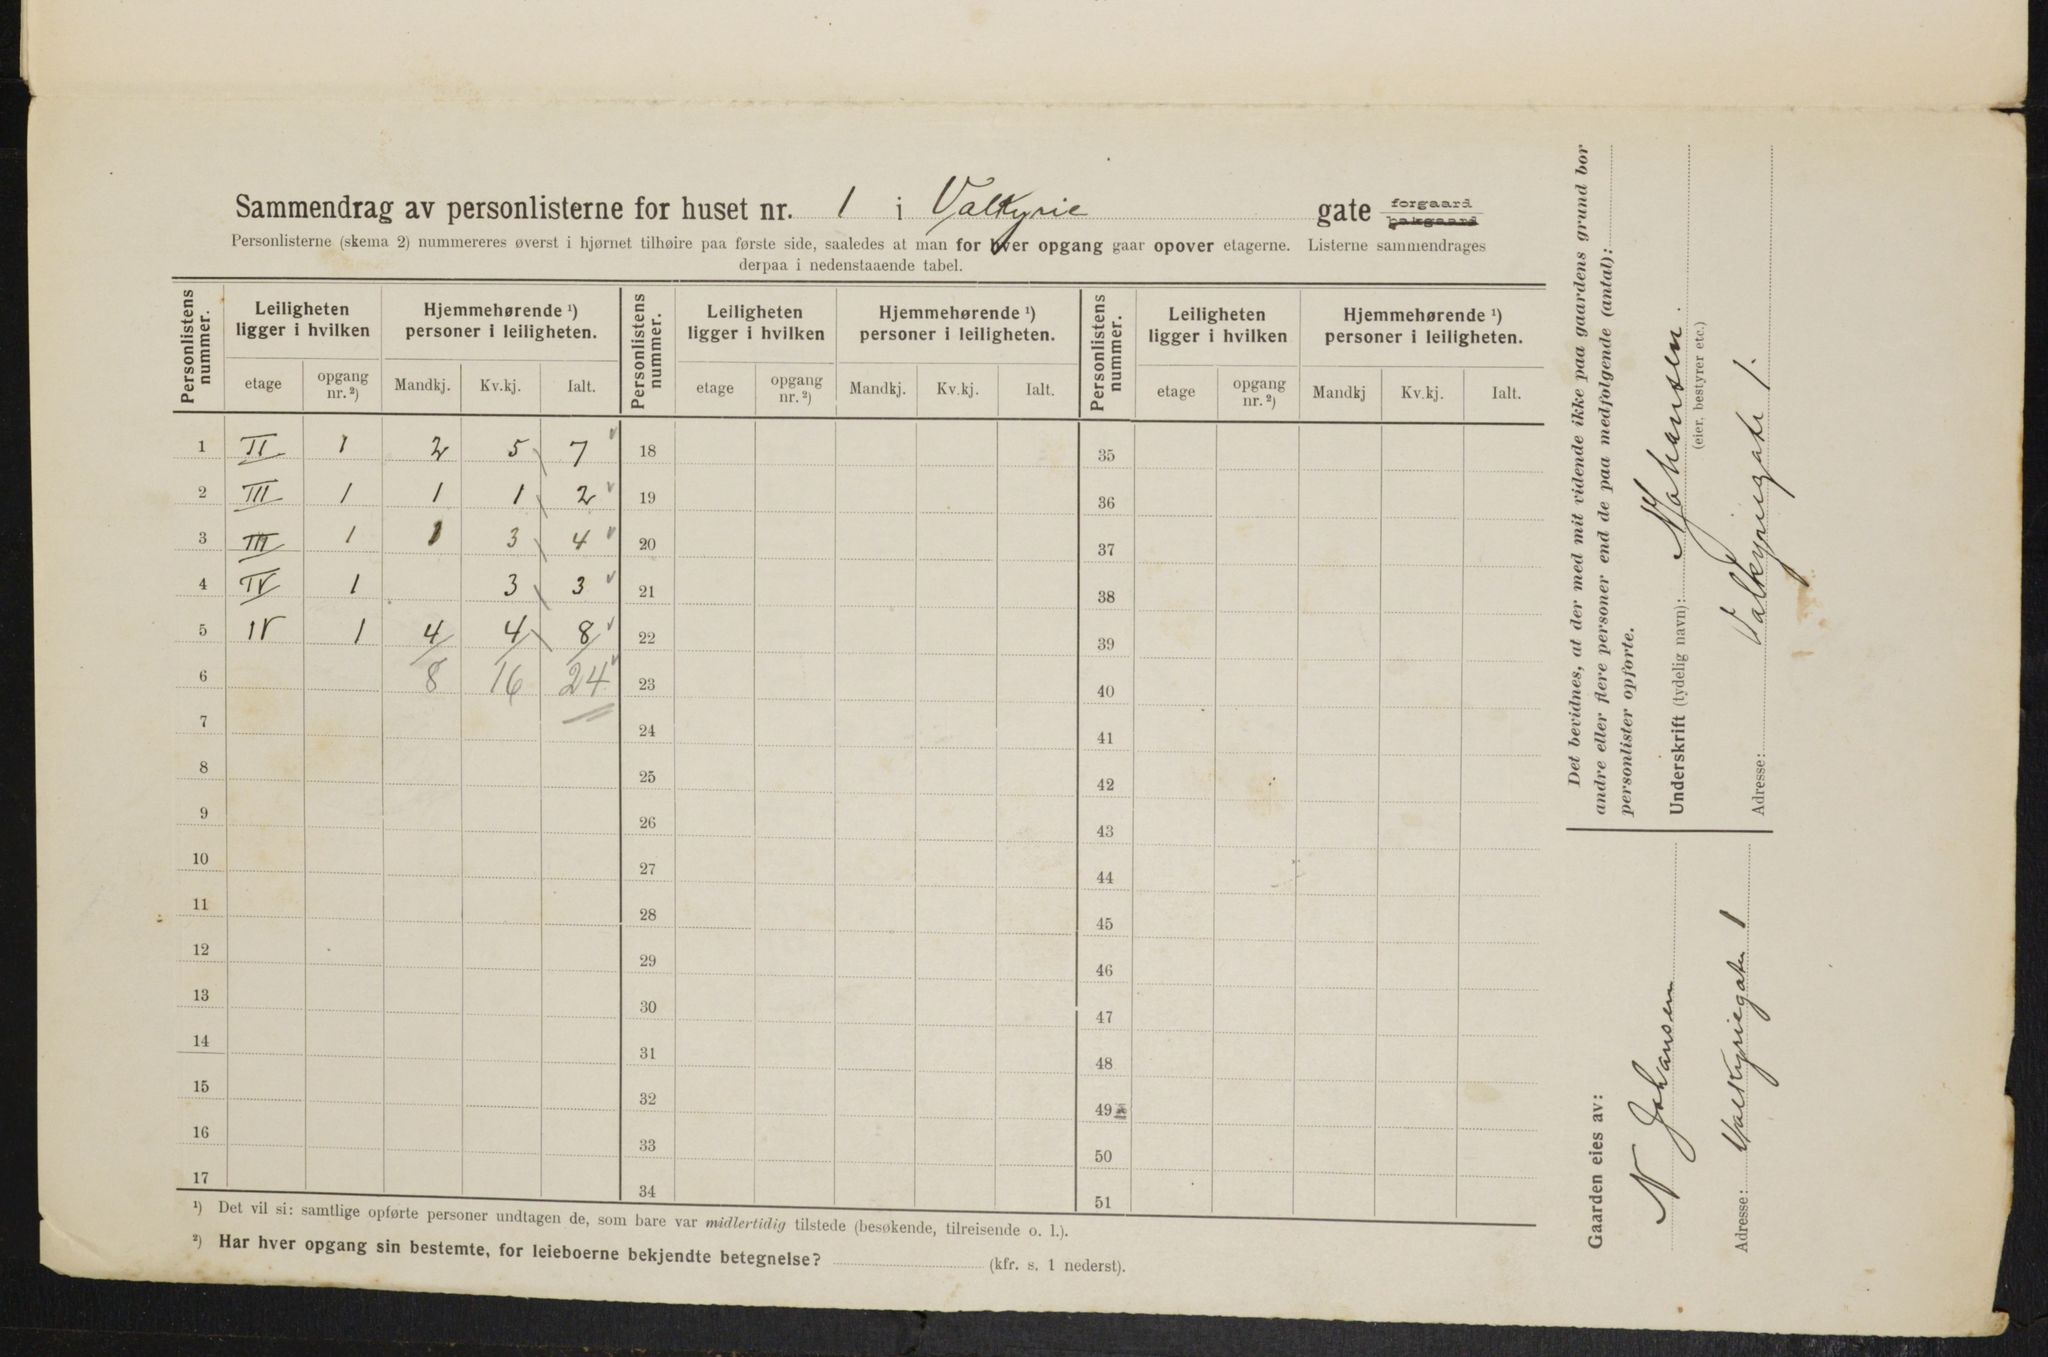 Sammendrag av personlisterne for huset nr. 1 i Valkyrie gate forgaard bakgaard
Personlisterne (skema 2) nummereres øverst i hjørnet tilhøire paa første side, saaledes at man for hver opgang gaar opover etagerne. Listerne sammendrages
derpaa i nedenstaaende tabel.
Personlistens nummer. Leiligheten ligger i hvilken Hjemmehørende ¹) personer i leiligheten. Personlistens nummer. Leiligheten ligger i hvilken Hjemmehørende ¹) personer i leiligheten. Personlistens nummer. Leiligheten ligger i hvilken Hjemmehørende ¹) personer i leiligheten.
etage opgang nr. ²) Mandkj. Kv.kj. Ialt. etage opgang nr. ²) Mandkj. Kv.kj. Ialt. etage opgang nr. ²) Mandkj Kv.kj. Ialt.
1 II 1 2 5 7 18 35
2 III 1 1 1 2 19 36
3 III 1 1 3 4 20 37
4 IV 1 3 3 21 38
5 IV 1 4 4 8 22 39
6 8 16 24 23 40
7 24 41
8 25 42
9 26 43
10 27 44
11 28 45
12 29 46
13 30 47
14 31 48
15 32 49
16 33 50
17 34 51
¹) Det vil si: samtlige opførte personer undtagen de, som bare var midlertidig tilstede (besøkende, tilreisende o. l.).
²) Har hver opgang sin bestemte, for leieboerne bekjendte betegnelse? (kfr. s. 1 nederst).
Det bevidnes, at der med mit vidende ikke paa gaardens grund bor
andre eller flere personer end de paa medfølgende (antal):
personlister opførte.
Underskrift (tydelig navn): N Johansen.
(eier, bestyrer etc.)
Adresse: Valkyrigate 1.
Gaarden eies av:
N Johansen
Adresse: Valkyriegaten 1